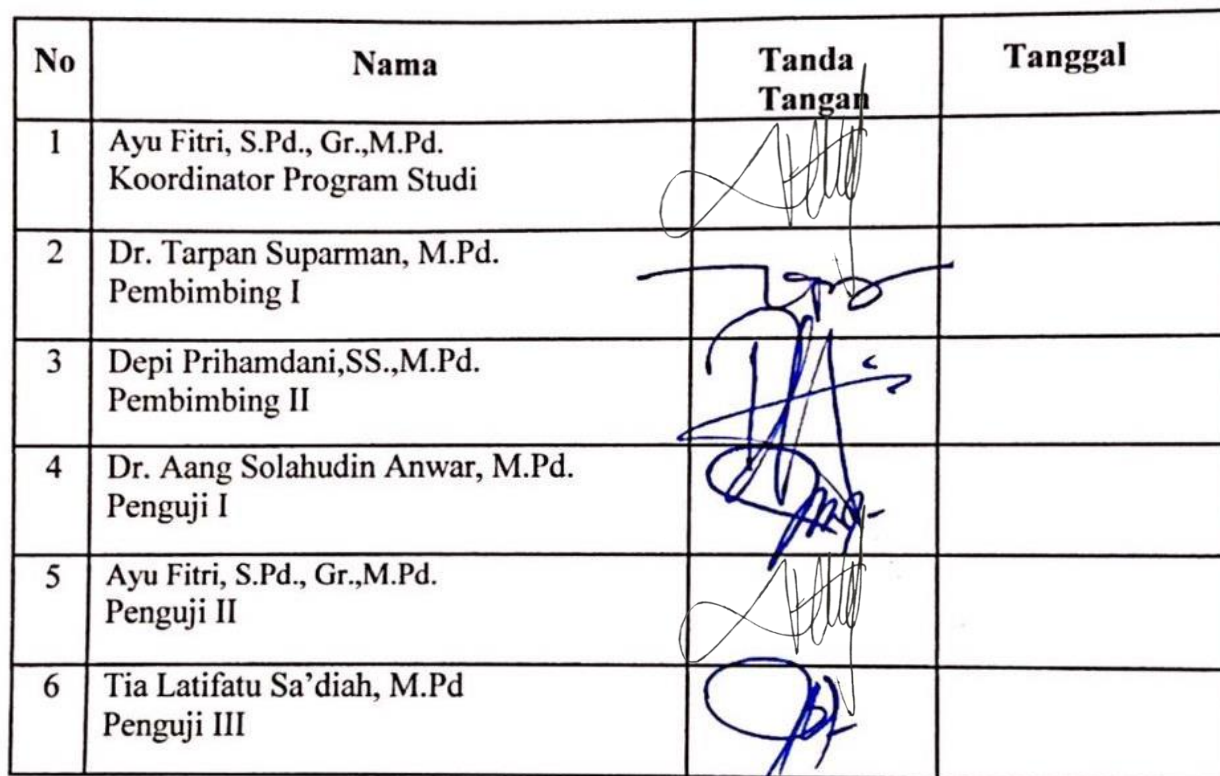 No Nama Tanda Tangan Tanggal
1 Ayu Fitri, S.Pd., Gr.,M.Pd.
Koordinator Program Studi
2 Dr. Tarpan Suparman, M.Pd.
Pembimbing I
3 Depi Prihamdani,SS.,M.Pd.
Pembimbing II
4 Dr. Aang Solahudin Anwar, M.Pd.
Penguji I
5 Ayu Fitri, S.Pd., Gr.,M.Pd.
Penguji II
6 Tia Latifatu Sa’diah, M.Pd
Penguji III